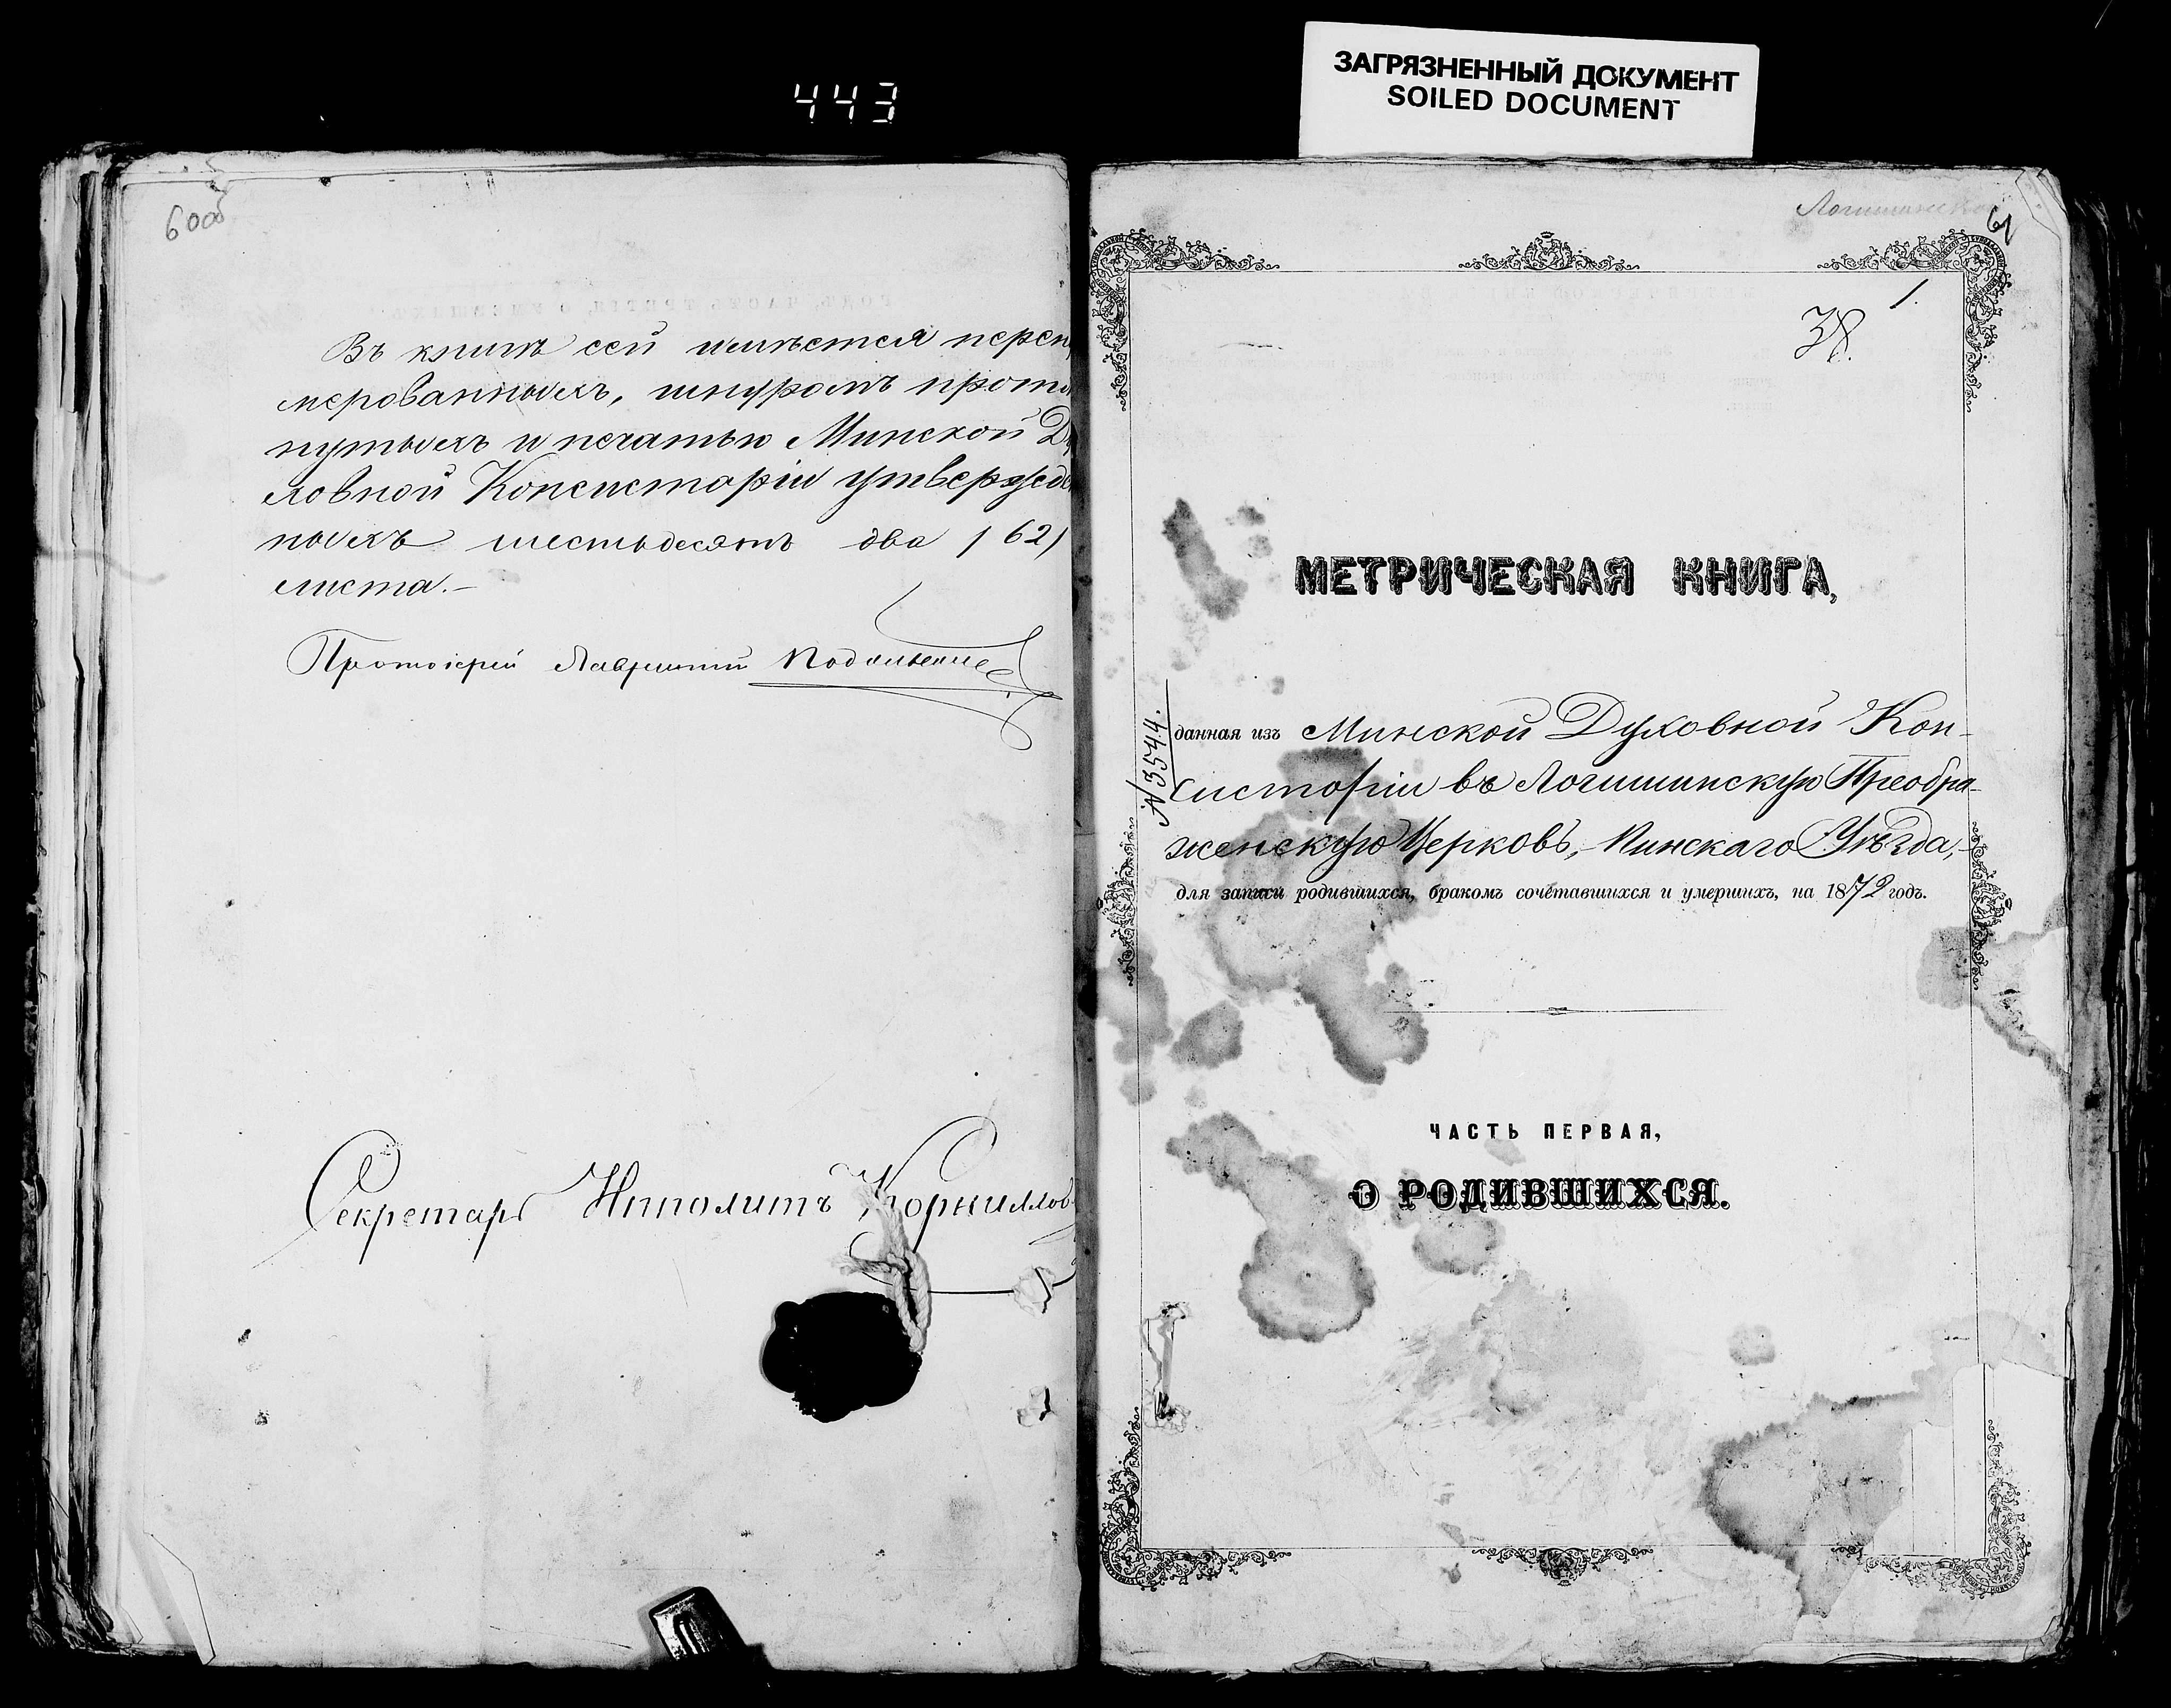 443
ЗАГРЯЗНЕННЫЙ ДОКУМЕНТ
SOILED DOCUMENT
60об
Въ книгѣ сей имѣется перен
мерованныхъ, шнуромъ прот
нутыхъ и печатью Минской Ду
ховной Консисторіи утвержде
ныхъ шестьдесятъ два /62/
листа.—
Протоіерей Лаврентій
Секретарь Ипполитъ Корнилов
Логишинск
61
1.
38.
МЕТРИЧЕСКАЯ КНИГА,
№ 3544.
данная изъ Минской Духовной Кон-
систоріи въ Логишинскую Преобра-
женскую Церковь, Пинскаго Уѣзда,
для записи родившихся, бракомъ сочетавшихся и умершихъ, на 1872 годъ.
ЧАСТЬ ПЕРВАЯ,
О РОДИВШИХСЯ.